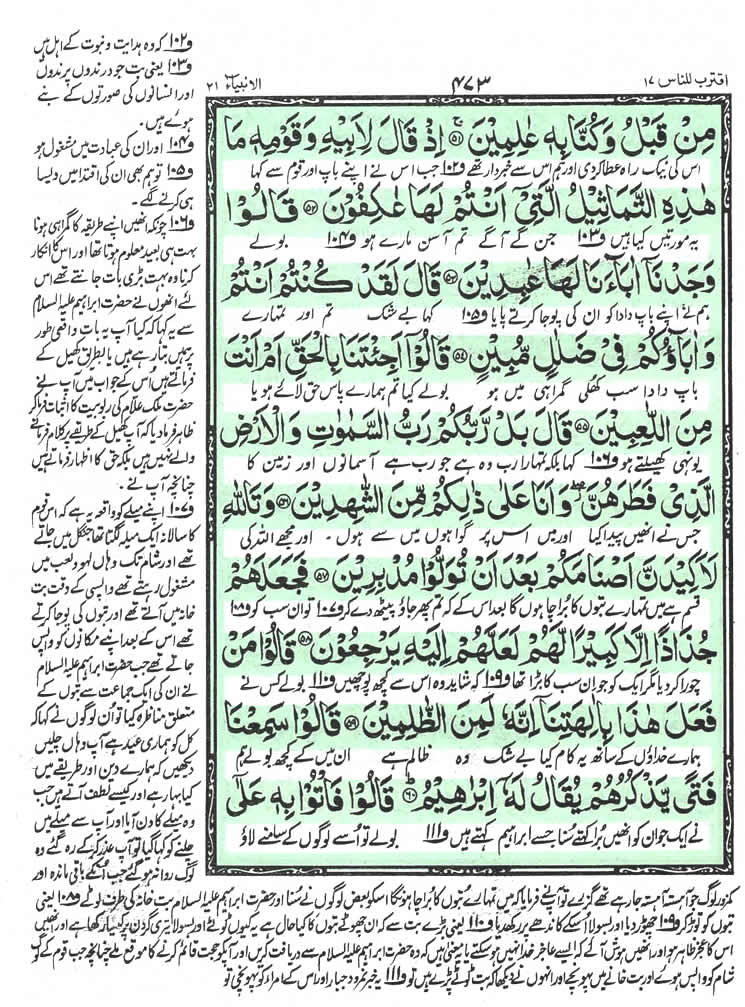 اقترب للناس ۱۷
۴۷۳
الانبیاء ۲۱
مِنْ قَبْلُ وَكُنَّا بِهٖ عٰلِمِيْنَ ۵۱ اِذْ قَالَ لِاَبِيْهِ وَقَوْمِهٖ مَا
اس کی نیک راہ عطا کر دی اور ہم اس سے خبردار تھے و۱۰۲ جب اس نے اپنے باپ اور قوم سے کہا
هٰذِهِ التَّمَاثِيْلُ الَّتِيْٓ اَنْتُمْ لَهَا عٰكِفُوْنَ ۵۲ قَالُوْا
یہ مورتیں کیا ہیں و۱۰۳ جن کے آگے تم آسن مارے ہو و۱۰۴ بولے
وَجَدْنَآ اٰبَآءَنَا لَهَا عٰبِدِيْنَ ۵۳ قَالَ لَقَدْ كُنْتُمْ اَنْتُمْ
ہم نے اپنے باپ دادا کو ان کی پوجا کرتے پایا و۱۰۵ کہا بے شک تم اور تمہارے
وَاٰبَآؤُكُمْ فِيْ ضَلٰلٍ مُّبِيْنٍ ۵۴ قَالُوْٓا اَجِئْتَنَا بِالْحَقِّ اَمْ اَنْتَ
باپ دادا سب کھلی گمراہی میں ہو بولے کیا تم ہمارے پاس حق لائے ہو یا
مِنَ اللّٰعِبِيْنَ ۵۵ قَالَ بَلْ رَّبُّكُمْ رَبُّ السَّمٰوٰتِ وَالْاَرْضِ
یونہی کھیلتے ہو و۱۰۶ کہا بلکہ تمہارا رب وہ ہے جو رب ہے آسمانوں اور زمین کا
الَّذِيْ فَطَرَهُنَّ ۖ وَاَنَا عَلٰى ذٰلِكُمْ مِّنَ الشّٰهِدِيْنَ ۵۶ وَتَاللّٰهِ
جس نے انھیں پیدا کیا اور میں اس پر گواہوں میں سے ہوں ۔ اور مجھے اللہ کی
لَاَكِيْدَنَّ اَصْنَامَكُمْ بَعْدَ اَنْ تُوَلُّوْا مُدْبِرِيْنَ ۵۷ فَجَعَلَهُمْ
قسم ہے میں تمہارے بتوں کا برا چاہوں گا بعد اس کے کہ تم پھر جاؤ پیٹھ دے کر و۱۰۷ تو ان سب کو و۱۰۸
جُذٰذًا اِلَّا كَبِيْرًا لَّهُمْ لَعَلَّهُمْ اِلَيْهِ يَرْجِعُوْنَ ۵۸ قَالُوْا مَنْ
چورا کر دیا مگر ایک کو جو ان سب کا بڑا تھا و۱۰۹ کہ شاید وہ اس سے کچھ پوچھیں و۱۱۰ بولے کس نے
فَعَلَ هٰذَا بِاٰلِهَتِنَآ اِنَّهٗ لَمِنَ الظّٰلِمِيْنَ ۵۹ قَالُوْا سَمِعْنَا
ہمارے خداؤں کے ساتھ یہ کام کیا بے شک وہ ظالم ہے ان میں کے کچھ بولے ہم
فَتًى يَّذْكُرُهُمْ يُقَالُ لَهٗٓ اِبْرٰهِيْمُ ۶۰ قَالُوْا فَاْتُوْا بِهٖ عَلٰٓى
نے ایک جوان کو انھیں برا کہتے سنا جسے ابراہیم کہتے ہیں و۱۱۱ بولے تو اسے لوگوں کے سامنے لاؤ
و۱۰۲ کہ وہ ہدایت و نبوت کے اہل ہیں
و۱۰۳ یعنی بت جو درندوں پرندوں
اور انسانوں کی صورتوں کے بنے
ہوئے ہیں۔
و۱۰۴ اور ان کی عبادت میں مشغول ہو
و۱۰۵ تو ہم بھی ان کی اقتدا میں ویسا
ہی کرنے لگے۔
و۱۰۶ چونکہ انھیں اپنے طریقہ کا گمراہی ہونا
بہت ہی بعید معلوم ہوتا تھا اور اس کا انکار
کرنا وہ بہت بڑی بات جانتے تھے اس
لئے انھوں نے حضرت ابراہیم علیہ السلام
سے یہ کہا کہ کیا آپ یہ بات واقعی طور
پر ہمیں بتا رہے ہیں یا بطریق کھیل کے
فرماتے ہیں اس کے جواب میں آپ نے
حضرت ملک علام کی ربوبیت کا اثبات فرما کر
ظاہر فرما دیا کہ آپ کھیل کے طریقے پر کلام فرمانے
والے نہیں ہیں بلکہ حق کا اظہار فرماتے ہیں
چنانچہ آپ نے ۔
و۱۰۷ اپنے میلے کو واقعہ یہ ہے کہ اس قوم
کا سالانہ ایک میلہ لگتا تھا جنگل میں جاتے
تھے اور شام تک وہاں لہو و لعب میں
مشغول رہتے تھے واپسی کے وقت بت
خانہ میں آتے تھے اور بتوں کی پوجا کرتے
تھے اس کے بعد اپنے مکانوں کو واپس
جاتے تھے جب حضرت ابراہیم علیہ السلام
نے ان کی ایک جماعت سے بتوں کے
متعلق مناظرہ کیا تو ان لوگوں نے کہا کہ
کل کو ہماری عید ہے آپ وہاں چلیں
دیکھیں کہ ہمارے دین اور طریقے میں
کیا بہار ہے اور کیسے لطف آتے ہیں جب
وہ میلے کا دن آیا اور آپ سے میلے میں
چلنے کو کہا گیا تو آپ عذر کر کے رہ گئے وہ
لوگ روانہ ہو گئے جب ان کے باقی ماندہ اور
کمزور لوگ جو آہستہ آہستہ جا رہے تھے گزرے تو آپ نے فرمایا کہ میں تمہارے بتوں کا برا چاہوں گا اس کو بعض لوگوں نے سنا اور حضرت ابراہیم علیہ السلام بت خانہ کی طرف لوٹے و۱۰۸ یعنی
بتوں کو توڑ کر و۱۰۹ چھوڑ دیا اور بسولا اس کے کاندھے پر رکھ دیا و۱۱۰ یعنی بڑے بت سے کہ ان چھوٹے بتوں کا کیا حال ہے یہ کیوں ٹوٹے اور بسولا تیری گردن پر کیسا رکھا ہے اور انھیں
اس کا عجز ظاہر ہو اور انھیں ہوش آئے کہ ایسے عاجز خدا نہیں ہو سکتے یا یہ معنی ہیں کہ وہ حضرت ابراہیم علیہ السلام سے دریافت کریں اور آپ کو حجت قائم کرنے کا موقع ملے چنانچہ جب قوم کے لوگ
شام کو واپس ہوئے اور بت خانے میں پہونچے اور انہوں نے دیکھا کہ بت ٹوٹے پڑے ہیں تو و۱۱۱ یہ خبر نمرود جبار اور اس کے امراء کو پہونچی تو